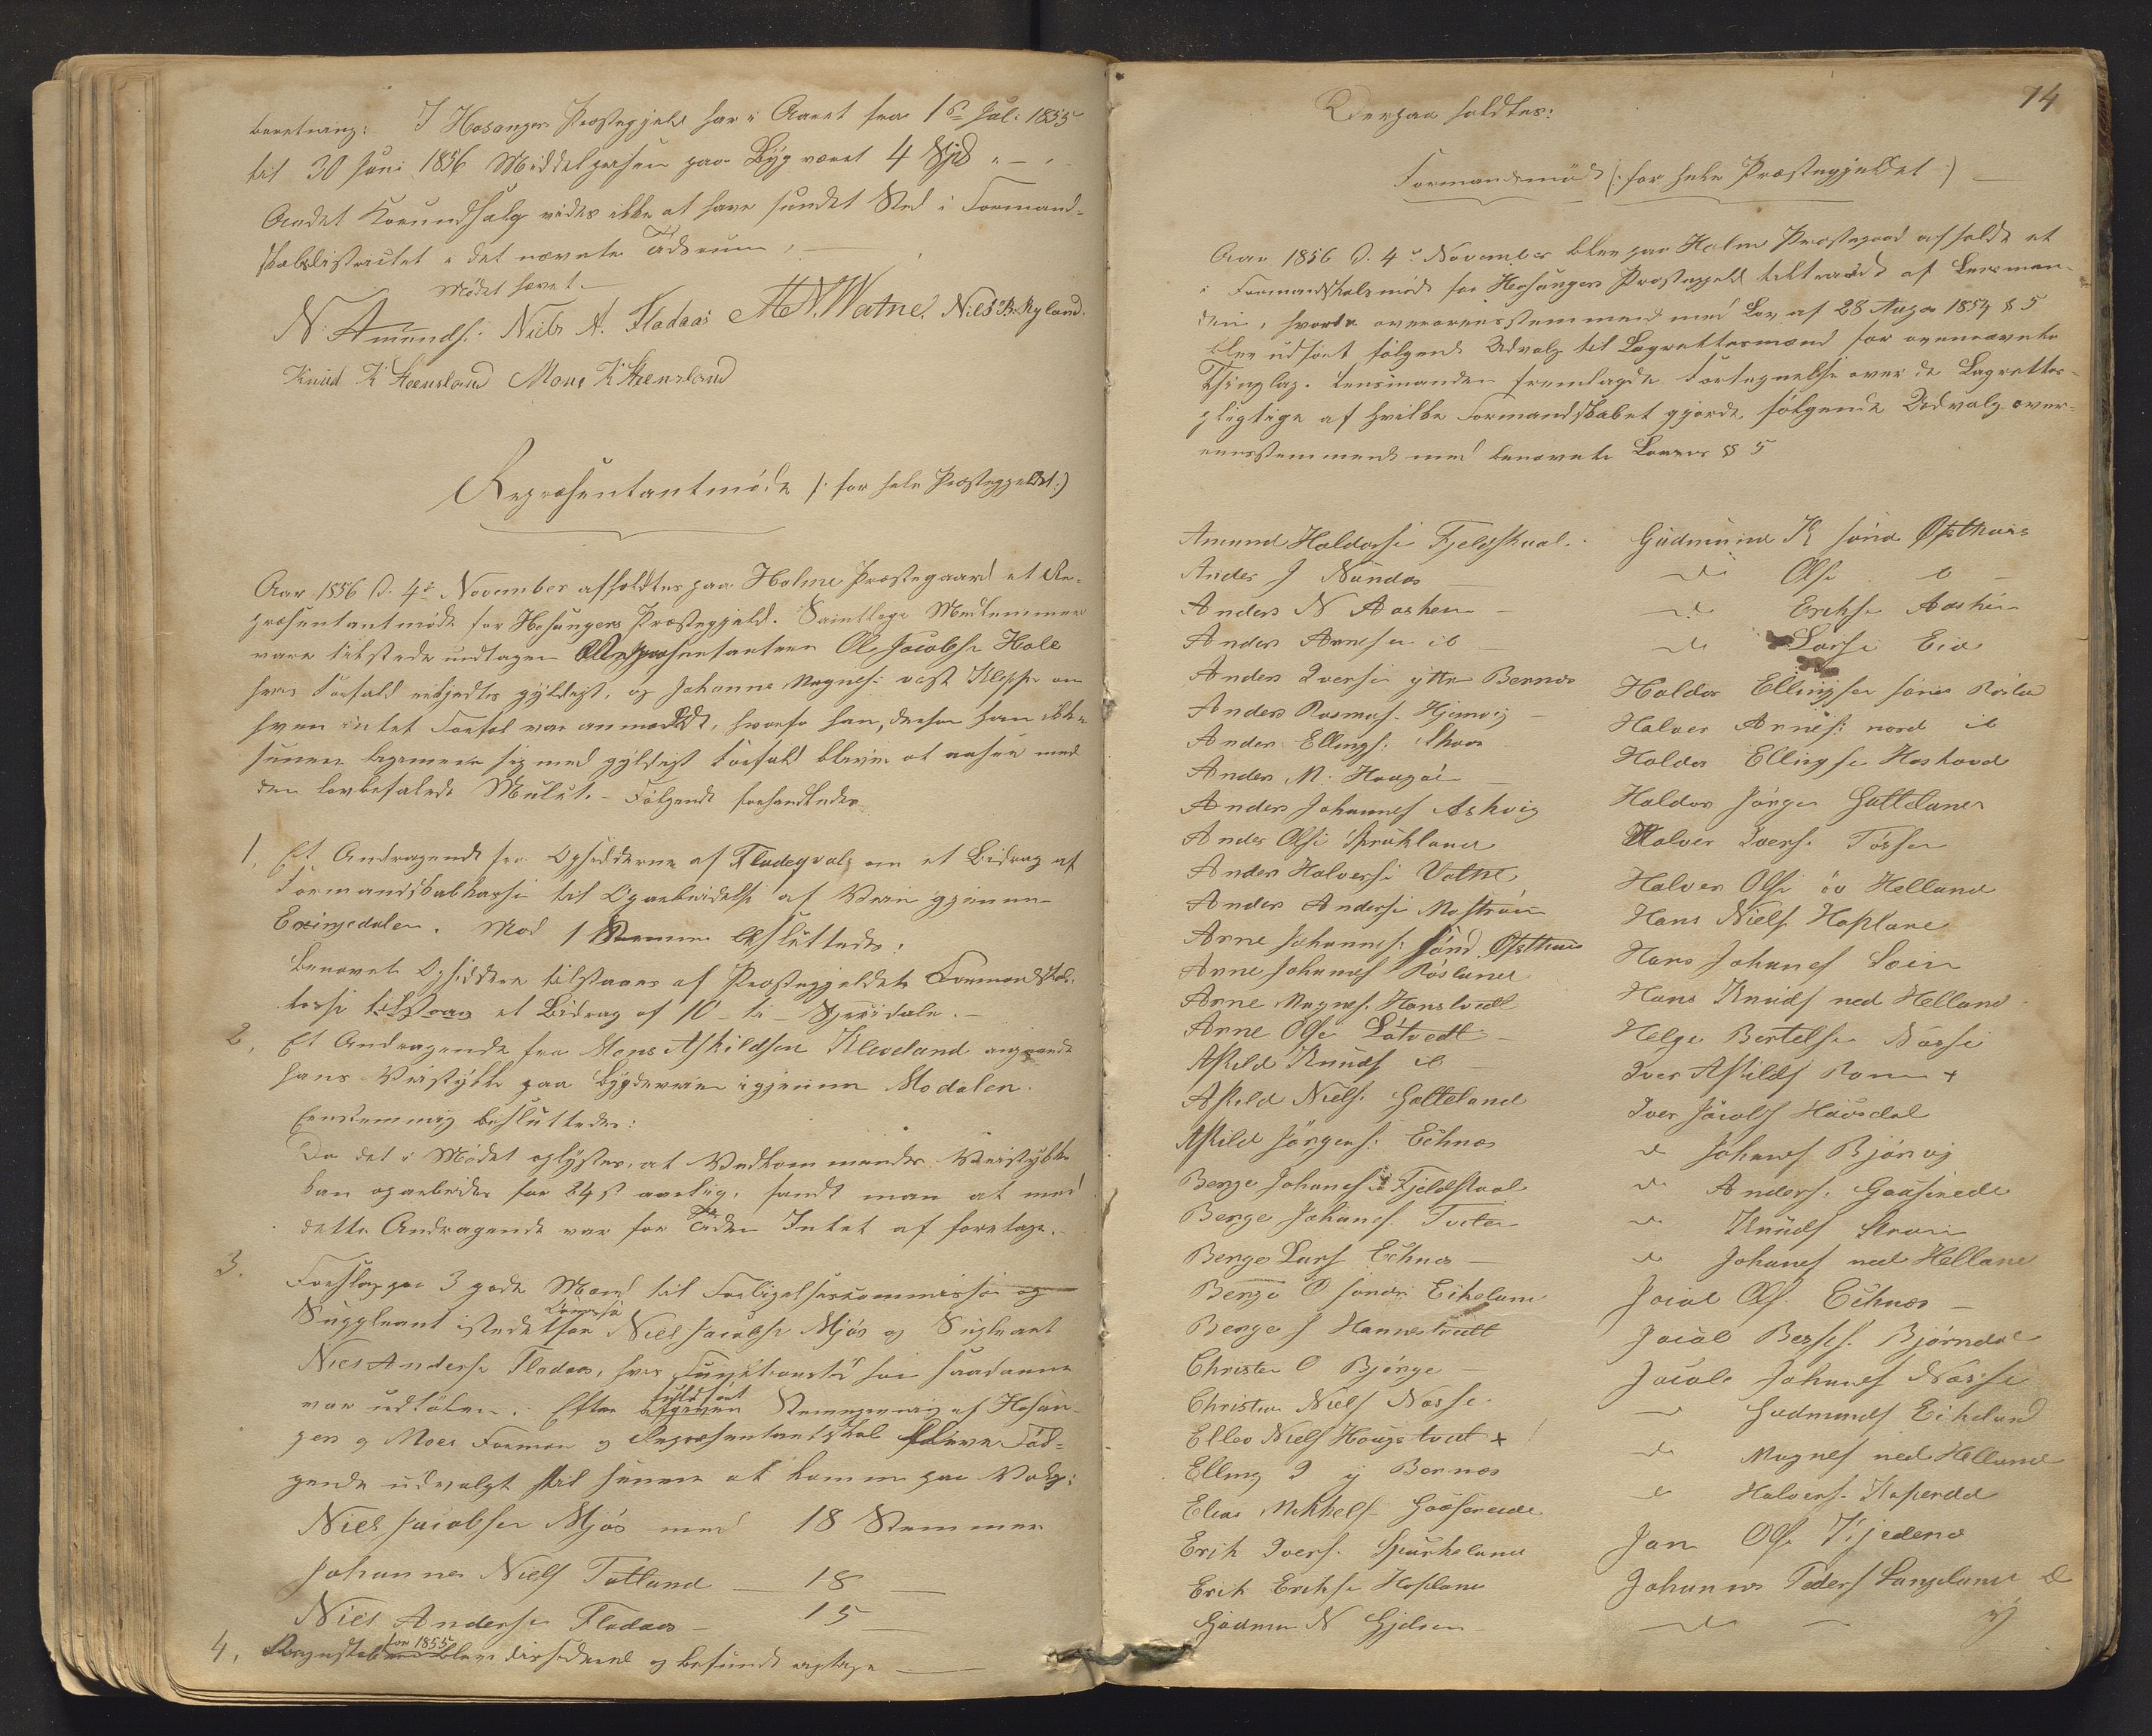 beretning: I Hosanger Præstegjeld har i Aaret fra 1ste Juli 1855
til 30 Juni 1856 Middelprisen paa Byg været 4 Spd " - "
Andet Kornudsalg vides ikke at have fundet Sted i Formand-
skabsdistriktet i det nævnte Tidsrum.
Mødet hævet.
N. Amunds: Niels A. Fladaas A N. Watne. Niels B. Ryland.
Knud K Steensland Mons K Steensland
Repræsentantmøde (: for hele Præstegjeldet :)
Aar 1856 d. 4de November afholdtes paa Holme Præstegaard et Re-
præsentantmøde for Hosangers Præstegjeld. Samtlige Medlemmer
vare tilstede undtagen Repræsentanten Ole Jacobsen Hole
hvis Forfald ansaaes gyldigt, og Johannes Magnes: vest Kleppe om
hvem intet Forfal var anmeldt, hvorfor han, dersom han ikke
senere legitimerer sig med gyldigt Forfald bliver at ansee med
den lovbefalede Mulct. - Følgende forhandledes
1, Et Andragende fra Opsidderne af Fladeqvals om et Bidrag af
Formandskabskassen til Oparbeidelse af Veien gjennem
Exingedalen. Mod 1 Stemme besluttedes:
Benævnte Opsiddere tilstaaes af Præstegjeldets Formandskabs-
kasse et Bidrag af 10 - ti - Speciedaler. -
2, Et Andragende fra Mons Askildsen Kleveland angaaende
hans Veistykke paa Bygdeveien igjennem Modalen.
Eenstemmig besluttedes:
Da det i Mødet oplystes, at Vedkommendes Veistykke
kan oparbeides for 24 s aarlig, fandt man at med
dette Andragende var for Tiden Intet at foretage. -
3. Forslag paa 3 gode Mænd til Forligelseskommissær og
Suppleant istedetfor Niels Jacobsen Mjøs og Supleant
Niels Anderse Fladaas, hvis Funktionstid som saadanne
var udløben. Efter fuldført Stemmegivning af Hosan-
ger og Moes Formen og Repræsentantskab bleve Føl-
gende udvalgt til senere at komme paa Valg:
Niels Jacobsen Mjøs med 18 Stemmer
Johannes Niels Tatland — 18 —
Niels Anderse Fladaas — 15 —
4, Regnskabet for 1855 blev desideret og befundet rigtige —
14
Derpaa holdtes:
Formandsmøde (: for hele Præstegjeldet :) —
Aar 1856 d. 4de November blev paa Holme Præstegaard afholdt et
Formandskabsmøde for Hosangers Præstegjeld tiltraadt af Lensman-
den, hvorda overensstemmende med Lov af 28 Aug 1854 § 5
blev udført følgende Udvalg til Lagrettesmænd for ovennævnte
Thinglag. Lensmanden fremlagde Fortegnelse over de Lagrettes-
pligtige af hvilke Formandskabet gjorde følgende Udvalg over-
eensstemmende med benævnte Lovens § 5
Amund Haldorse Fjeldskaal.
Anders J Nundas —
Anders N Aasheim —
Anders Arnesen ib —
Anders Iversen yttre Bernæs
Anders Rasmus. Hjemvig —
Anders Ellings: Skaar
Anders M. Haugøe —
Anders Johannes Askvig
Anders Olse Spurkland
Anders Halverse Vatne
Anders Anderse Mostraum
Arne Johannes: sønd. Øfsthuus
Arne Johannes Røsland
Arne Magnes. Hanstvedt
Arne Olse Løtvedt —
Askild Knuds ib —
Askild Niels. Høtteland
Askild Jørgens: Echnæs
Berge Johanes Fjeldskaal
Berge Johanes. Tveten
Berge Lars Echnæs —
Berge O søndr Eikeland
Berge J Hannestvedt
Christen O Bjørge —
Christen Niels Nesse.
Ellev Niels Haugstvedt x
Elling I y Bernæs
Elias Mikkels. Gaasereide
Erik Ivers. Spurkeland
Erik Erikse Hopland
Gudmun N Gjelsen —
Gudmund K søndr Øfsthuus
do Olse ib —
do Erikse Aasheim
do Larse Eide
Haldor Ellingsen søndr Røsland
Halver Arnes: nord ib
Haldor Ellingse Haskavd
Haldor Jørgen Høtteland
Halver Ivers. Tøssen
Halver Olse øv Helland
Hans Niels. Hopland
Hans Johanes Loein
Hans Knuds ned Helland
Helge Bertelse Nesse
Iver Askilds Ram x
Iver Jacobs Hausdal
do Johanes Bjørvig
do Anders: Gaasereide
do Knuds Straum
do Johanes ned Helland
Jacob Ols. Echnæs —
Jacob Berges. Bjørndal
Jacob Johanes Nesse
do Gudmunds Eikeland
do Magnes ned Helland
do Halvers. Kaperdal
Jon Olse Tjedeno
Johannes Peders Langeland
do — ib